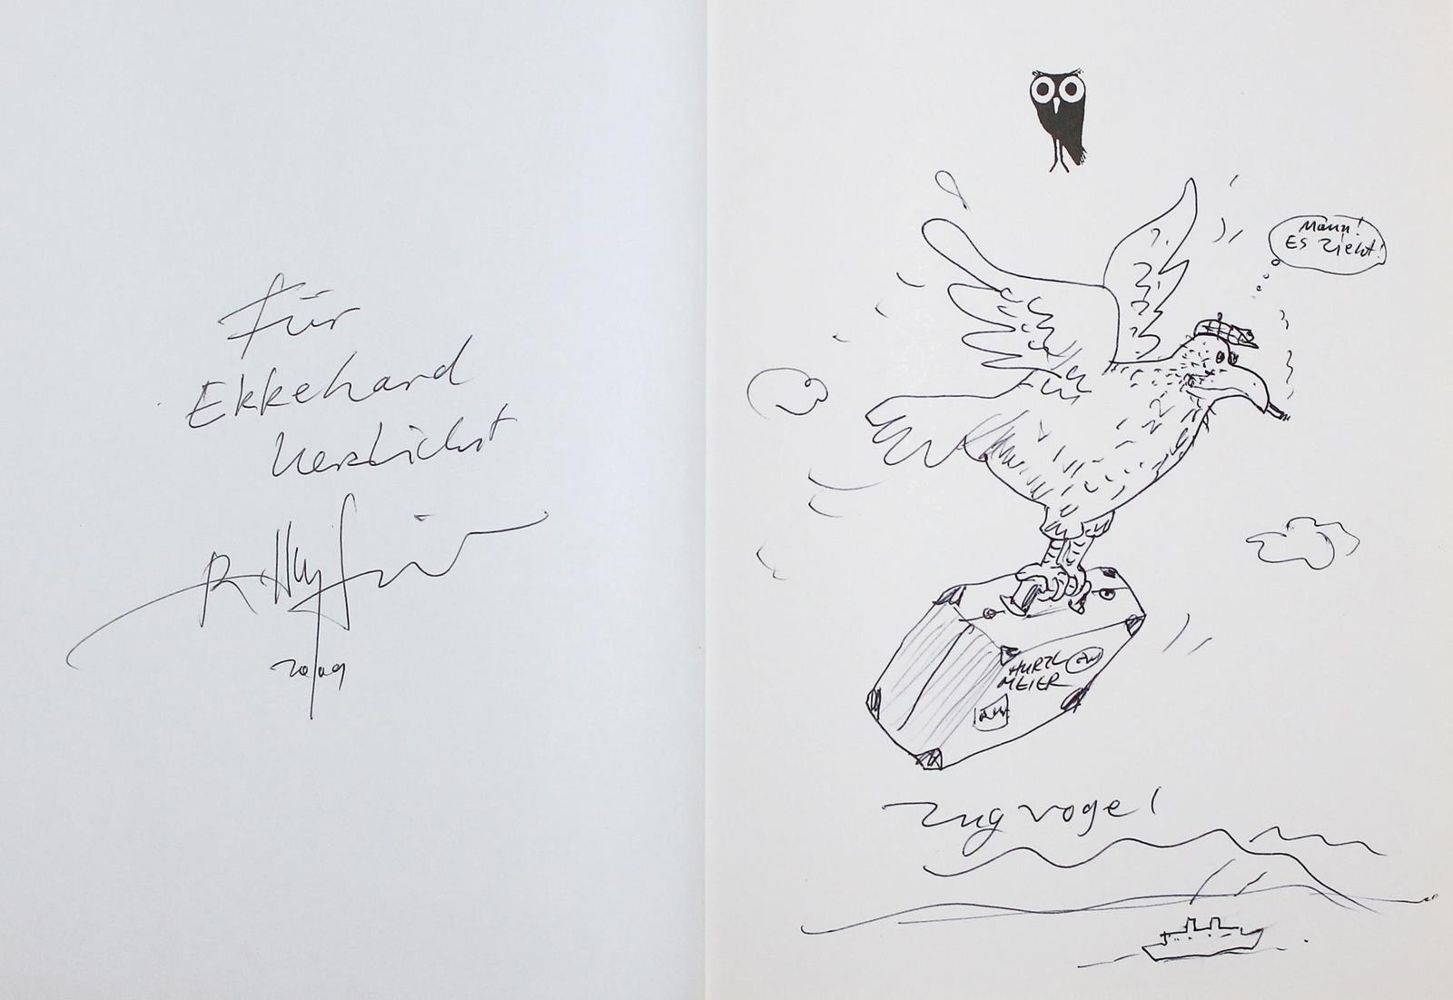 Für
Ekkehard
herzlichst
20/09
Mann!
Es zieht!
HURZL
MEIER
Zugvogel